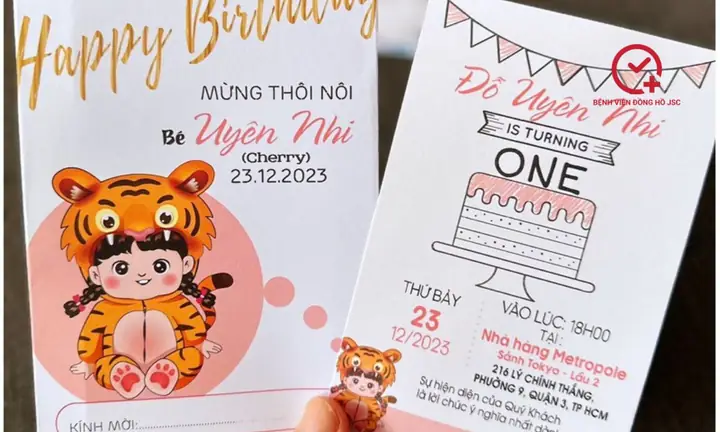 Happy Birthday
MỪNG THÔI NÔI
Bé Uyên Nhi
(Cherry)
23.12.2023
KÍNH MỜI:
BỆNH VIỆN ĐỒNG HỒ JSC
Đỗ Uyên Nhi
IS TURNING
ONE
THỨ BẢY
23
12/2023
VÀO LÚC: 18H00
TẠI:
Nhà hàng Metropole
Sảnh Tokyo - Lầu 2
216 LÝ CHÍNH THẮNG,
PHƯỜNG 9, QUẬN 3, TP HCM
Sự hiện diện của Quý Khách
là lời chúc ý nghĩa nhất